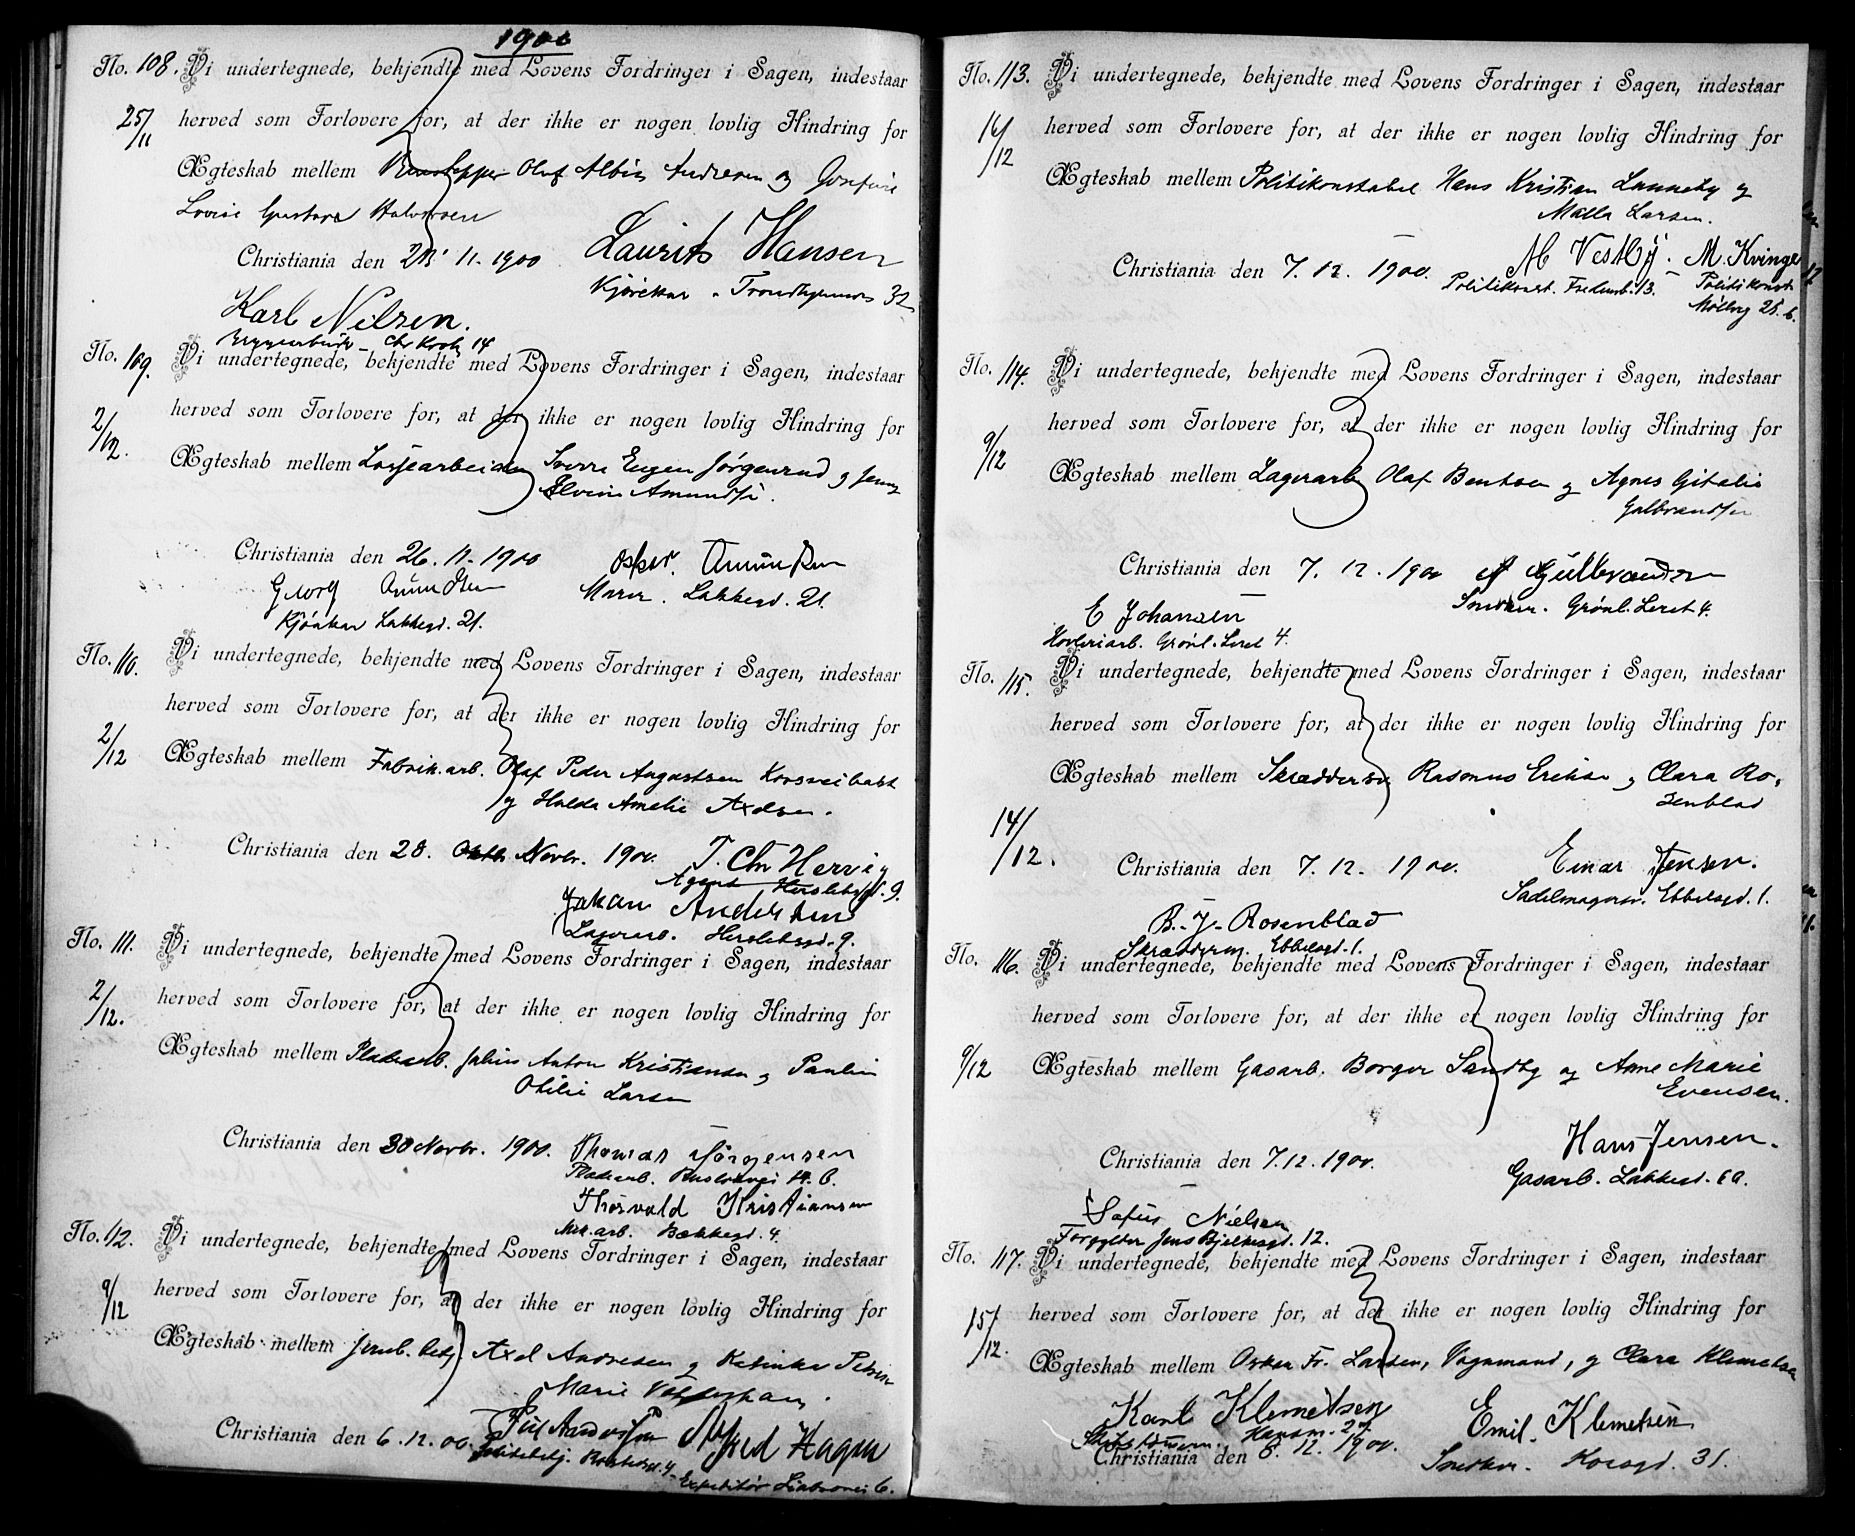 1900
No. 108. Vi undertegnede, bekjendte med Lovens Fordringer i Sagen, indestaar
25/11 herved som Forlovere for, at der ikke er nogen lovlig Hindring for
Ægteskab mellem Olaf Albin Andresen og Josefine
Lovise Gustava Halvorsen
Christiania den 11. 1900 Laurits Hansen
32
Karl Nilsen.
Bryggearbeider Chr Krohg 14
No. 109. Vi undertegnede, bekjendte med Lovens Fordringer i Sagen, indestaar
2/12. herved som Forlovere for, at der ikke er nogen lovlig Hindring for
Ægteskab mellem Sverre Eugen Jørgenrud og Jenny
Elvine Amundse
Christiania den 26. 11. 1900 Oskar Amundsen
Georg Amundsen Murer. Lakkegd. 21.
Lakkegd. 21.
No. 110. Vi undertegnede, bekjendte med Lovens Fordringer i Sagen, indestaar
2/12 herved som Forlovere for, at der ikke er nogen lovlig Hindring for
Ægteskab mellem Fabrik.arb. Olaf Peder Augustsen
og Hulda Amelie Axelsen.
Christiania den 28. Novbr. 1900. T. Chr Hervig
Agent Herslebsgd. 9.
Johan Andersen
Lagerarb. Herslebsgd. 9.
No. 111. Vi undertegnede, bekjendte med Lovens Fordringer i Sagen, indestaar
2/12. herved som Forlovere for, at der ikke er nogen lovlig Hindring for
Ægteskab mellem Pladearb. Julius Anton Kristiansen og Pauline
Otilie Larsen
Christiania den 30 Novbr. 1900. Thomas Jørgensen
Pladearb.
Thorvald Kristiansen
Mek.arb. Bakkegd. 4.
No. 112. Vi undertegnede, bekjendte med Lovens Fordringer i Sagen, indestaar
9/12 herved som Forlovere for, at der ikke er nogen lovlig Hindring for
Ægteskab mellem Jernb. betj. Axel Andresen og Katinka
Marie
Christiania den 6. 12. 00. Alfred Hagen
6.
No. 113. Vi undertegnede, bekjendte med Lovens Fordringer i Sagen, indestaar
16/12 herved som Forlovere for, at der ikke er nogen lovlig Hindring for
Ægteskab mellem Politikonstabel Hans Kristian Lanneby og
Malla Larsen.
Christiania den 7. 12. 1900. M Vestby. M. Kvinge
Politikonst. Fredensb. 13. Politikonst.
Møllerg 25. b.
No. 114. Vi undertegnede, bekjendte med Lovens Fordringer i Sagen, indestaar
9/12 herved som Forlovere for, at der ikke er nogen lovlig Hindring for
Ægteskab mellem Lagerarb Olaf Bentsen og Agnes Gitalie
Gulbrandsen
Christiania den 7. 12. 1900 A Gulbrandsen
E Johansen Snedker. Grønl. Leret 4.
Høvleriarb. Grønl. Leret 4.
No. 115. Vi undertegnede, bekjendte med Lovens Fordringer i Sagen, indestaar
herved som Forlovere for, at der ikke er nogen lovlig Hindring for
Ægteskab mellem Skræddersv Rasmus Eriksen og Clara Ro-
senblad
14/12. Christiania den 7. 12. 1900. Einar Jensen.
Sadelmagersv. Ebbelsgd. 1.
B. J. Rosenblad
Skræderm. Ebbelsgd. 1.
No. 116. Vi undertegnede, bekjendte med Lovens Fordringer i Sagen, indestaar
herved som Forlovere for, at der ikke er nogen lovlig Hindring for
9/12 Ægteskab mellem Gasarb. Borger Sandby og Anne Marie
Evensen.
Christiania den 7. 12. 1900. Hans Jensen.
Gasarb. Lakkegd.
Sofus Nielsen
Forgylder Jens Bjelkesgd. 12.
No. 117. Vi undertegnede, bekjendte med Lovens Fordringer i Sagen, indestaar
15/12. herved som Forlovere for, at der ikke er nogen lovlig Hindring for
Ægteskab mellem Oskar Fr. Larsen, Vognmand, og Clara Klemetsen
Karl Klemetsen Emil. Klemetsen
Christiania den 8. 12. 1900. Snedker. Korsgd. 31.